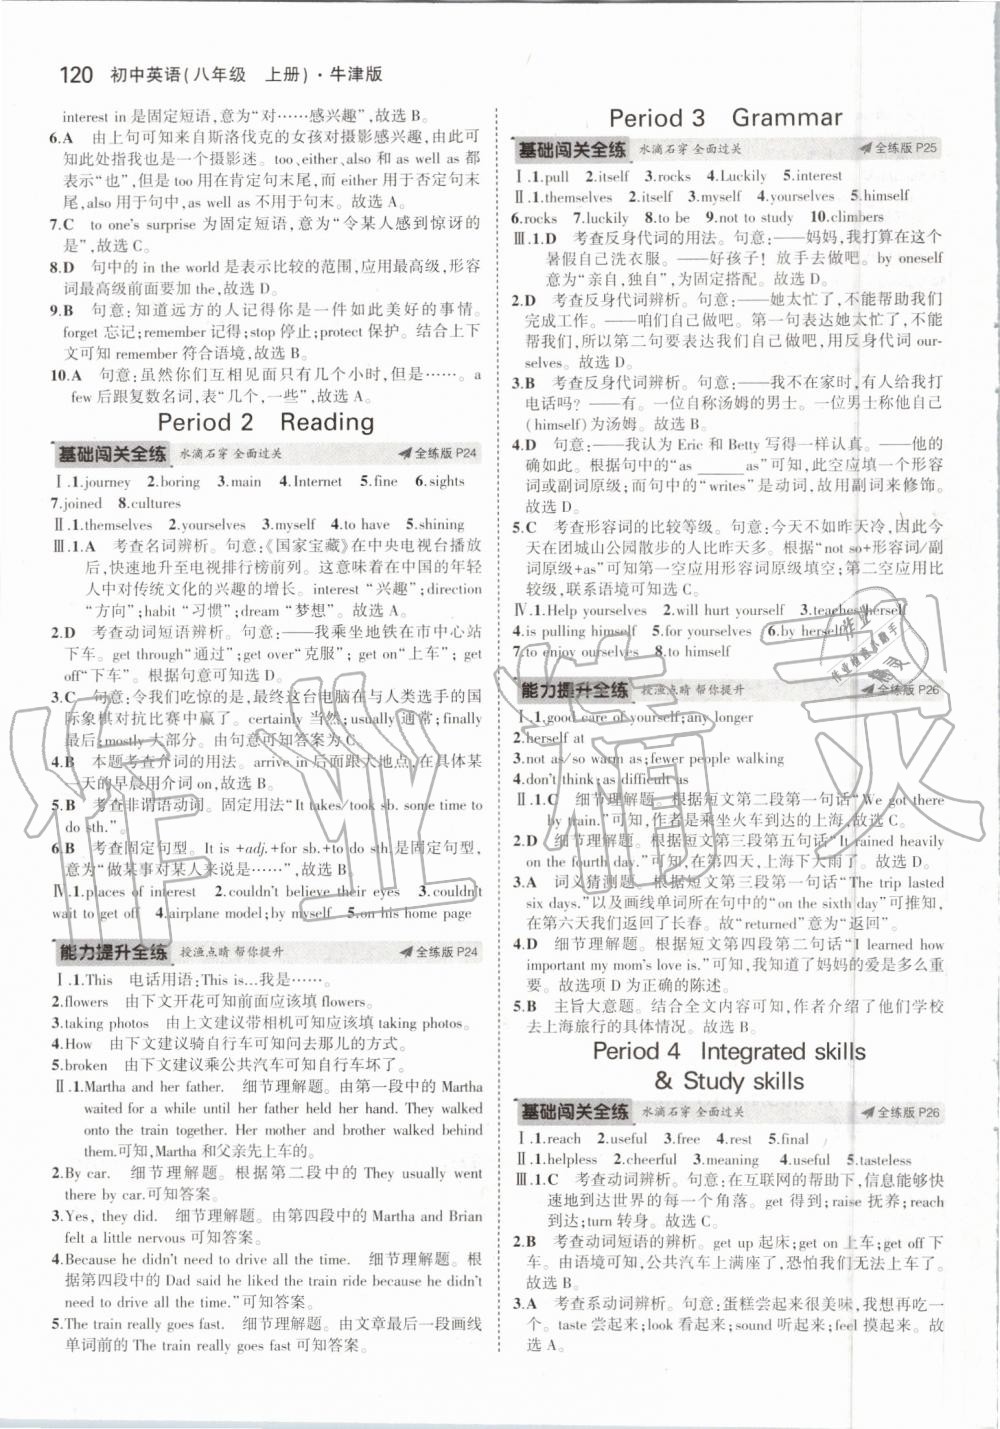 120 初中英语(八年级 上册)·牛津版
interest in 是固定短语,意为“对……感兴趣”,故选 B。
6.A 由上句可知来自斯洛伐克的女孩对摄影感兴趣,由此可
知此处指我也是一个摄影迷。too、either、also 和 as well as 都
表示“也”,但是 too 用在肯定句句末尾,而 either 用于否定句
末尾,also 用于句中,as well as 不用于句末。故选 A。
7.C to one's surprise 为固定短语,意为“令某人感到惊讶的
是”,故选 C。
8.D 句中的 in the world 是表示比较的范围,应用最高级,形容
词最高级前面要加 the,故选 D。
9.B 句意:知道远方的人记得你是一件如此美好的事情。
forget 忘记;remember 记得;stop 停止;protect 保护。结合上下
文可知 remember 符合语境,故选 B。
10.A 句意:虽然你们互相见面只有几个小时,但是……。a
few 后跟复数名词,表“几个,一些”,故选 A。
Period 2 Reading
基础闯关全练 水滴石穿 全面过关 全练版 P24
Ⅰ.1.journey 2.boring 3.main 4.Internet 5.fine 6.sights
7.joined 8.cultures
Ⅱ.1.themselves 2.yourselves 3.myself 4.to have 5.shining
Ⅲ.1.A 考查名词辨析。句意:《国家宝藏》在中央电视台播放
后,快速地升至电视排行榜前列。这意味着在中国的年轻
人中对传统文化的兴趣的增长。interest“兴趣”;direction
“方向”;habit“习惯”;dream“梦想”。故选 A。
2.D 考查动词短语辨析。句意:——我乘坐地铁在市中心站
下车。get through“通过”;get over“克服”;get on“上车”;get
off“下车”。根据句意可知选 D。
3.C 句意:令我们吃惊的是,最终这台电脑在与人类选手的国
际象棋对抗比赛中赢了。certainly 当然;usually 通常;finally
最后;mostly 大部分。由句意可知答案为 C。
4.B 本题考查介词的用法。arrive in 后面跟大地点,在具体某
一天的早晨用介词 on,故选 B。
5.B 考查非谓语动词。固定用法“It takes/took sb. some time to
do sth.”。
6.B 考查固定句型。It is +adj.+for sb.+to do sth.是固定句型,
意为“做某事对某人来说是……”,故选 B。
Ⅳ.1.places of interest 2.couldn't believe their eyes 3.couldn't
wait to get off 4.airplane model;by myself 5.on his home page
能力提升全练 授渔点睛 帮你提升 全练版 P24
Ⅰ.1.This 电话用语:This is…我是……。
2.flowers 由下文开花可知前面应该填 flowers。
3.taking photos 由上文建议带相机可知应该填 taking photos。
4.How 由下文建议骑自行车可知问去那儿的方式。
5.broken 由下文建议乘公共汽车可知自行车坏了。
Ⅱ.1.Martha and her father. 细节理解题。由第一段中的 Martha
waited for a while until her father held her hand. They walked
onto the train together. Her mother and brother walked behind
them.可知,Martha 和父亲先上车的。
2.By car. 细节理解题。根据第二段中的 They usually went
there by car.可知答案。
3.Yes, they did. 细节理解题。由第四段中的 Martha and Brian
felt a little nervous 可知答案。
4.Because he didn't need to drive all the time. 细节理解题。根
据第四段中的 Dad said he liked the train ride because he didn't
need to drive all the time.”可知答案。
5.The train really goes fast. 细节理解题。由文章最后一段画线
单词前的 The train really goes fast 可知答案。
Period 3 Grammar
基础闯关全练 水滴石穿 全面过关 全练版 P25
Ⅰ.1.pull 2.itself 3.rocks 4.Luckily 5.interest
Ⅱ.1.themselves 2.itself 3.myself 4.yourselves 5.himself
6.rocks 7.luckily 8.to be 9.not to study 10.climbers
Ⅲ.1.D 考查反身代词的用法。句意:——妈妈,我打算在这个
暑假自己洗衣服。——好孩子!放手去做吧。by oneself
意为“亲自,独自”,为固定搭配。故选 D。
2.D 考查反身代词辨析。句意:——她太忙了,不能帮助我们
完成工作。——咱们自己做吧。第一句表达她太忙了,不能
帮我们,所以第二句要表达我们自己做吧,用反身代词 our-
selves。故选 D。
3.B 考查反身代词辨析。句意:——我不在家时,有人给我打
电话吗?——有。一位自称汤姆的男士。一位男士称自己
(himself)为汤姆。故选 B。
4.D 句意:——我认为 Eric 和 Betty 写得一样认真。——他的
的确如此。根据句中的“as ______ as”可知,此空应填一个形容
词或副词原级;而句中的“writes”是动词,故用副词来修饰。
故选 D。
5.C 考查形容词的比较等级。句意:今天不如昨天冷,因此今
天在团城山公园散步的人比昨天多。根据“not so+形容词/副
词原级+as”可知第一空应用形容词原级填空;第二空应用比
较级,联系语境可知选 C。
Ⅳ.1.Help yourselves 2.will hurt yourself 3.teaches herself
4.is pulling himself 5.for yourselves 6.by herself
7.to enjoy ourselves 8.to himself
能力提升全练 授渔点睛 帮你提升 全练版 P26
Ⅰ.1.good care of yourself;any longer
2.herself at
3.not as/so warm as;fewer people walking
4.don't think;as difficult as
Ⅱ.1.C 细节理解题。根据短文第二段第一句话“We got there
by train.”可知,作者是乘坐火车到达的上海,故选 C。
2.D 细节理解题。根据短文第三段第五句话“It rained heavily
on the fourth day.”可知,在第四天,上海下大雨了。故选 D。
3.A 词义猜测题。根据短文第三段第一句话“The trip lasted
six days.”以及画线单词所在的句中的“on the sixth day”可知,
在第六天我们返回了长春。故“returned”意为“返回”。
4.D 细节理解题。根据短文第四段第二句话“I learned how
important my mom's love is.”可知,作者知道了妈妈的爱是多么重
要。故选项 D 为正确的陈述。
5.B 主旨大意题。结合全文内容可知,作者介绍了他们学校
去上海旅行的具体情况。故选 B。
Period 4 Integrated skills
& Study skills
基础闯关全练 水滴石穿 全面过关 全练版 P26
Ⅰ.1.reach 2.useful 3.free 4.rest 5.final
Ⅱ.1.helpless 2.cheerful 3.meaning 4.useful 5.tasteless
Ⅲ.1.C 考查动词辨析。句意:在互联网的帮助下,信息能够快
速地到达世界的每一个角落。get 得到;raise 抚养;reach
到达;turn 转身。故选 C。
2.B 考查动词短语的辨析。get up 起床;get on 上车;get off 下
车。由语境可知,公共汽车上满座了,恐怕我们无法上车。
故选 B。
3.A 考查系动词辨析。句意:蛋糕尝起来很美味,我想再吃一
个。taste 尝起来;look 看起来;sound 听起来;feel 摸起来。故
选 A。
作业精灵